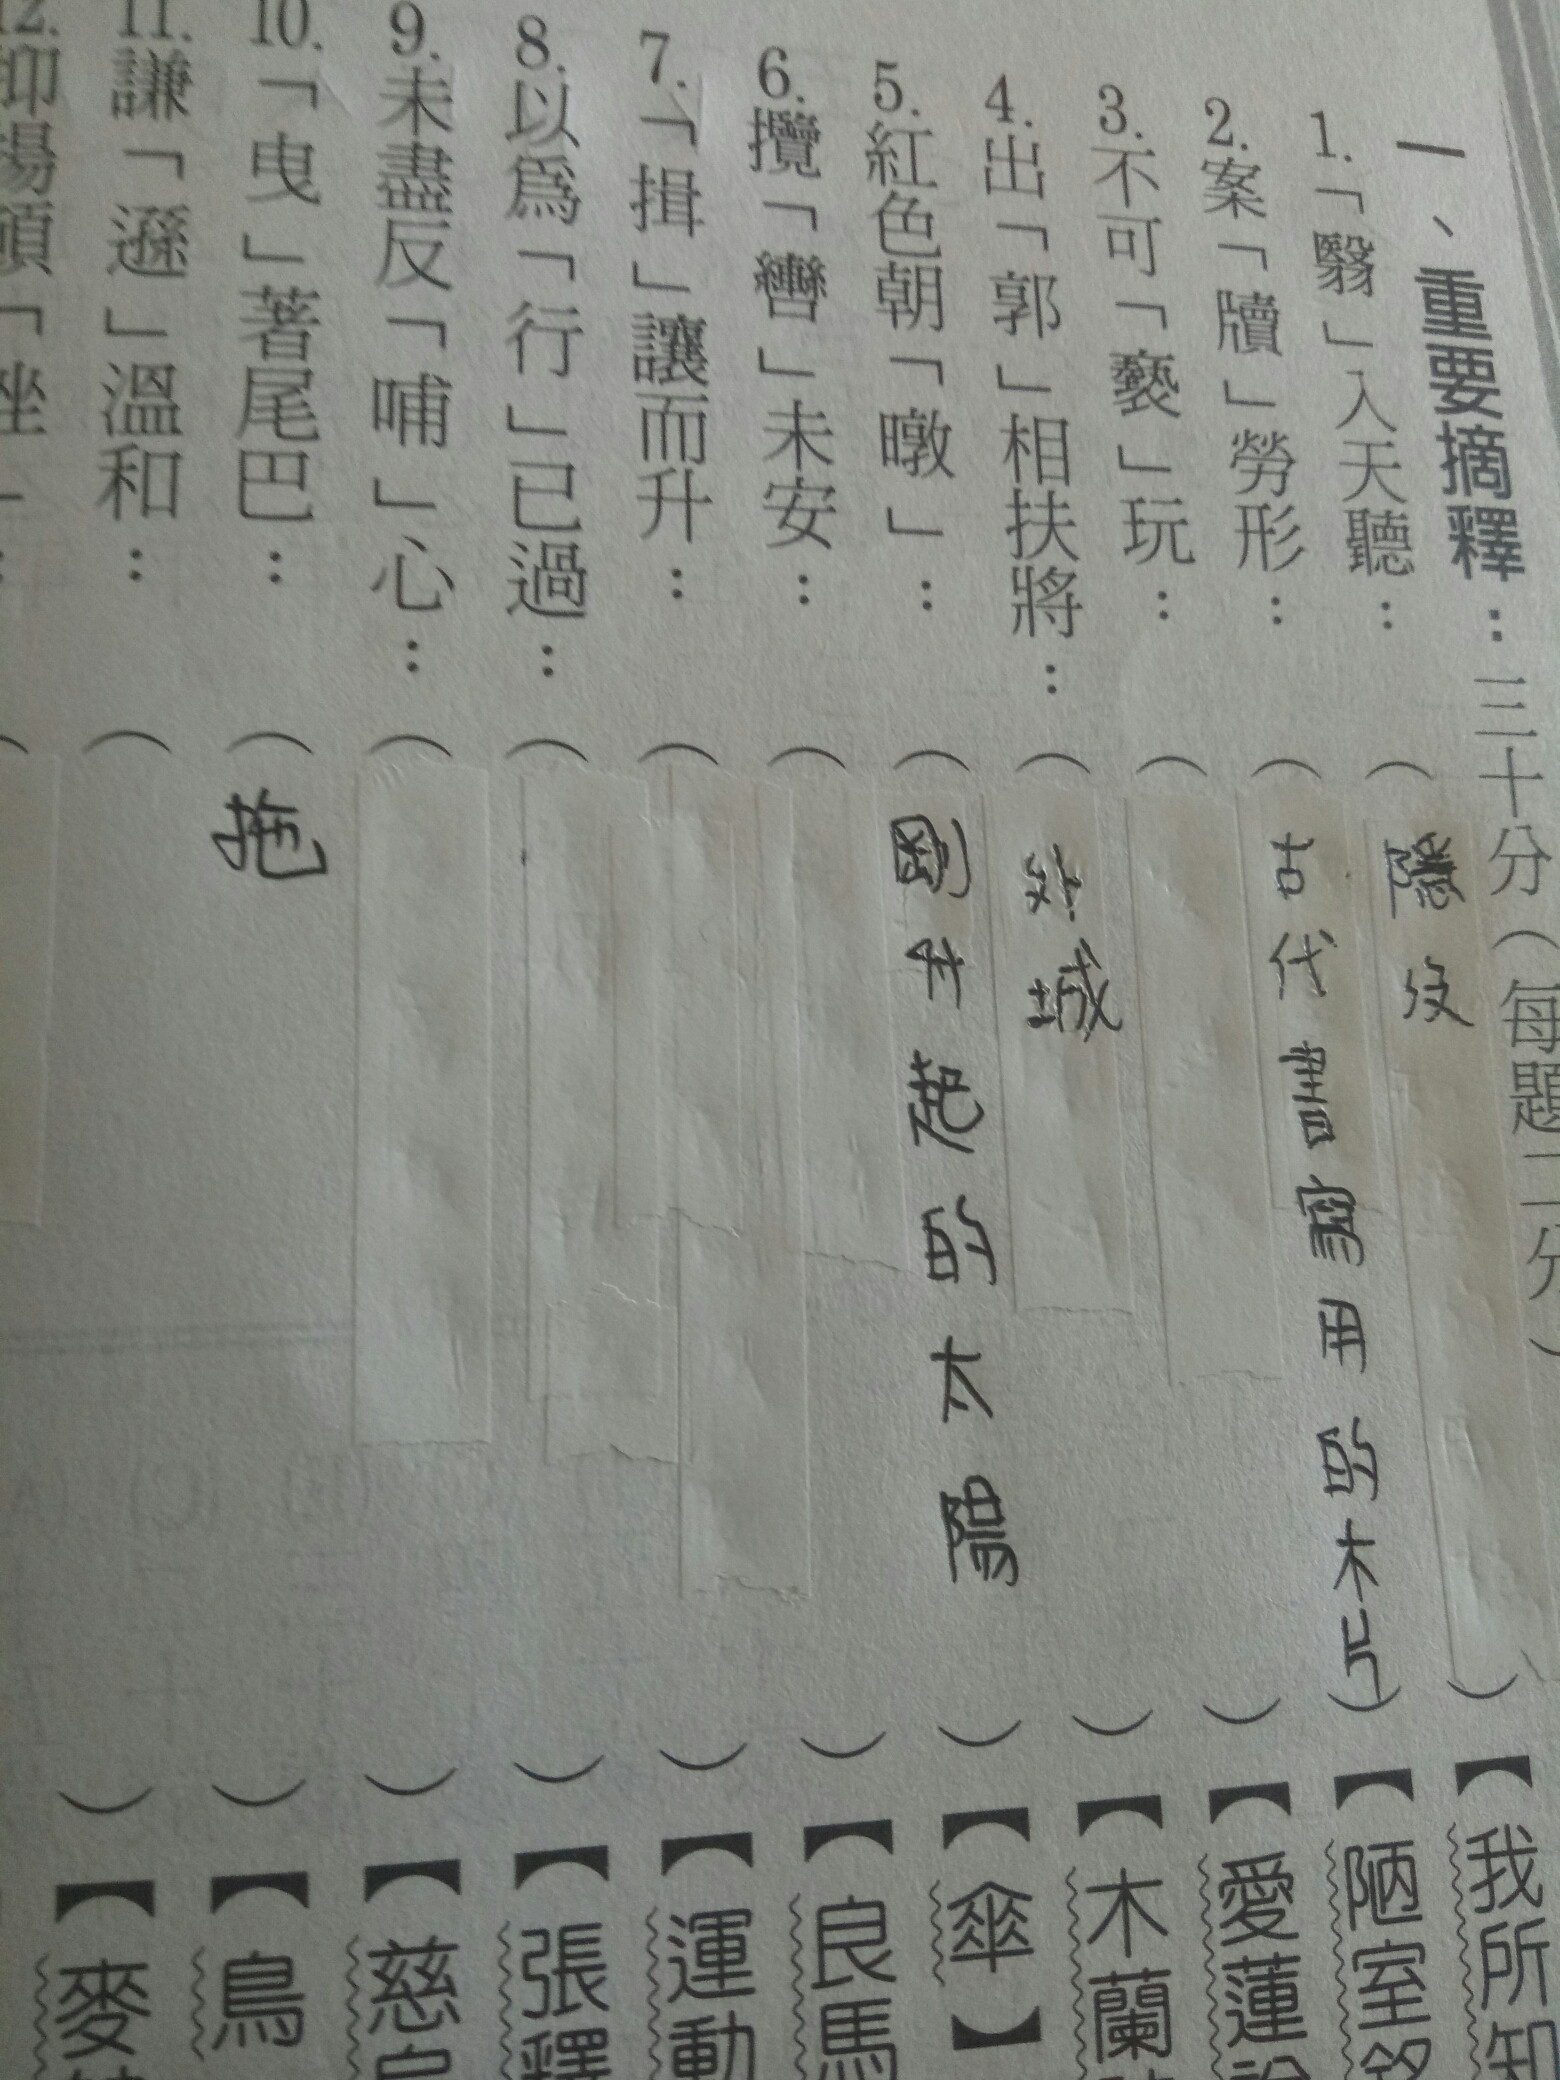 一、重要摘釋：三十分（每題二分）
1.「翳」入天聽：（隱沒）【我所知
2.案「牘」勞形：（古代書寫用的木片）【陋室銘
3.不可「褻」玩：（　）【愛蓮說
4.出「郭」相扶將：（外城）【木蘭
5.紅色朝「暾」：（剛升起的太陽）【傘】
6.攬「轡」未安：（　）【良馬
7.「揖」讓而升：（　）【運動
8.以爲「行」已過：（　）【張釋
9.未盡反「哺」心：（　）【慈烏
10.「曳」著尾巴：（拖）【鳥
11.謙「遜」溫和：（　）【麥
12.抑揚頓「挫」：（